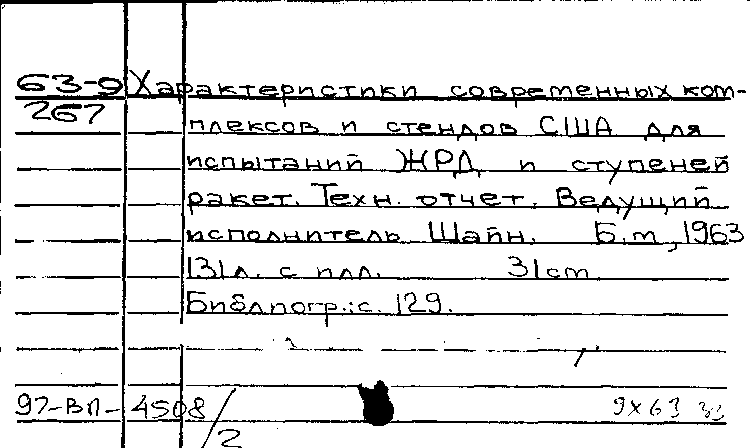 63-9 Характеристики современных ком-
267 плексов и стендов США для
испытаний ЖРД и ступеней
ракет. Техн. отчет. Ведущий
исполнитель Шайн. Б.м, 1963
131л. с илл. 31cm
Библиогр.: с. 129.
97-ВП-4508/2 9X63